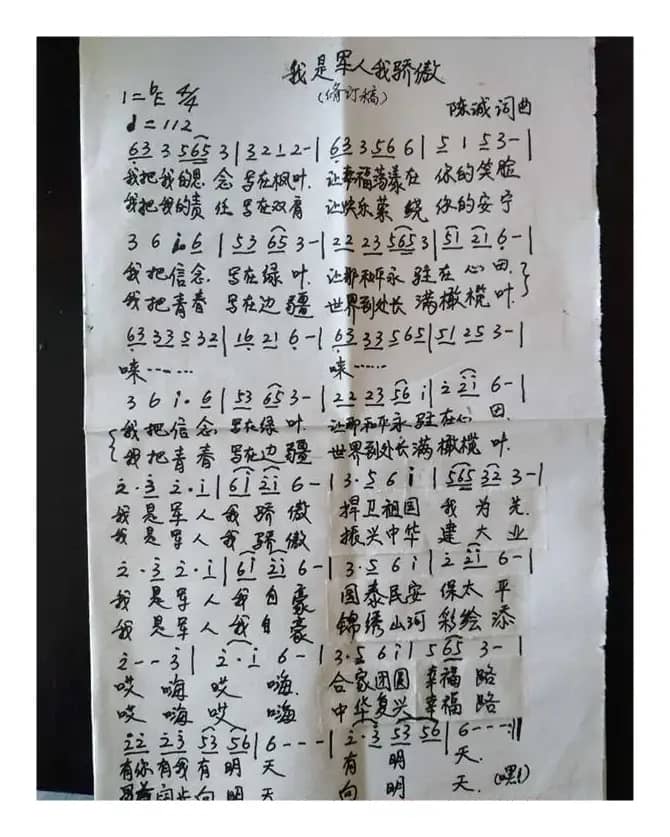 我是军人我骄傲
(修订稿)
1=♭E 4/4
陈诚 词曲
♩=112
63 3 565 3 | 3 2 1 2- | 63 3 56 6 | 5 1 5 3- |
我把我的思 念 写在枫叶. 让幸福荡漾在 你的笑脸
我把我的责 任 写在双肩 让快乐萦 绕 你的安宁
3 6 i·6 | 53 65 3- | 22 23 565 3 | 51 21 6- |
我把信念 写在绿 叶. 让那和平永 驻在 心 田.
我把青春 写在边 疆 世界到处长 满橄榄 叶.
63 33 5 32 | 16 21 6- | 63 33 565 | 51 25 3- |
唻…… 唻……
3 6 i·6 | 53 65 3- | 22 23 56 i | 2 2i 6- |
我把信念 写在绿 叶. 让那和平永 驻在心 田.
我把青春 写在边 疆 世界到处长 满橄榄 叶.
2·3 2·i | 6i 2i 6- | 3·5 6 i | 565 32 3- |
我是军人 我骄 傲 捍卫祖国 我 为 先.
我是军人 我骄 傲 振兴中华 建 大 业
2·3 2·i | 6i 2i 6- | 3·5 6i | 2 2i 6- |
我是军人 我自 豪 国泰民安 保太 平
我是军人 我自 豪 锦绣山河 彩绘 添
2 - - 3 | 2·i 6- | 3·5 6i | 5 65 3- |
哎 嗨 哎 嗨. 合家团圆 幸福 路
哎 嗨 哎 嗨 中华复兴 幸福 路
22 23 53 56 | 6--- | 2·3 53 56 | 6---:‖
有你有我有 明 天 有 明 天.
向 明 天 向 明 天. (嘿!)